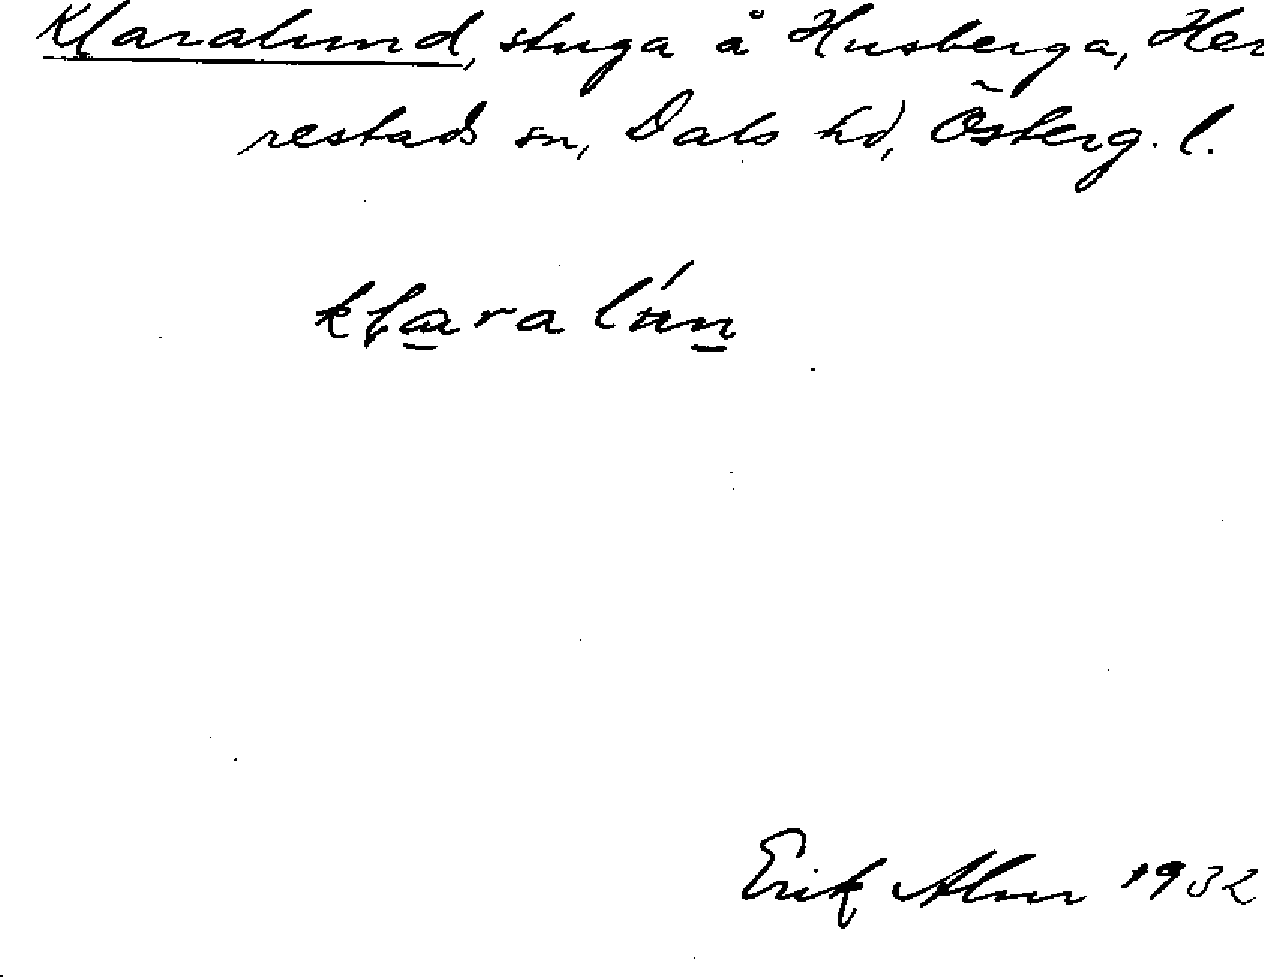 Klaralund, stuga å Husberga, Her
restads sn, Dals hd, Österg. l.
klaralún
Erik Alm 1932